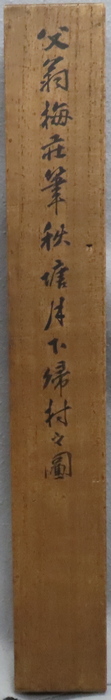 父翁梅荘筆秋塘月下帰村之圖